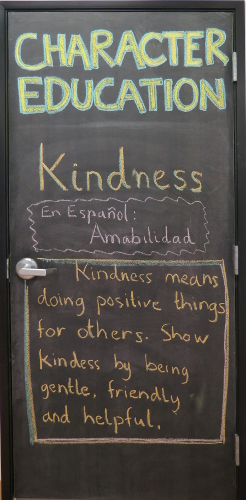 CHARACTER
EDUCATION
Kindness
En Español:
Amabilidad
Kindness means
doing positive things
for others. Show
Kindess by being
gentle, friendly
and helpful.